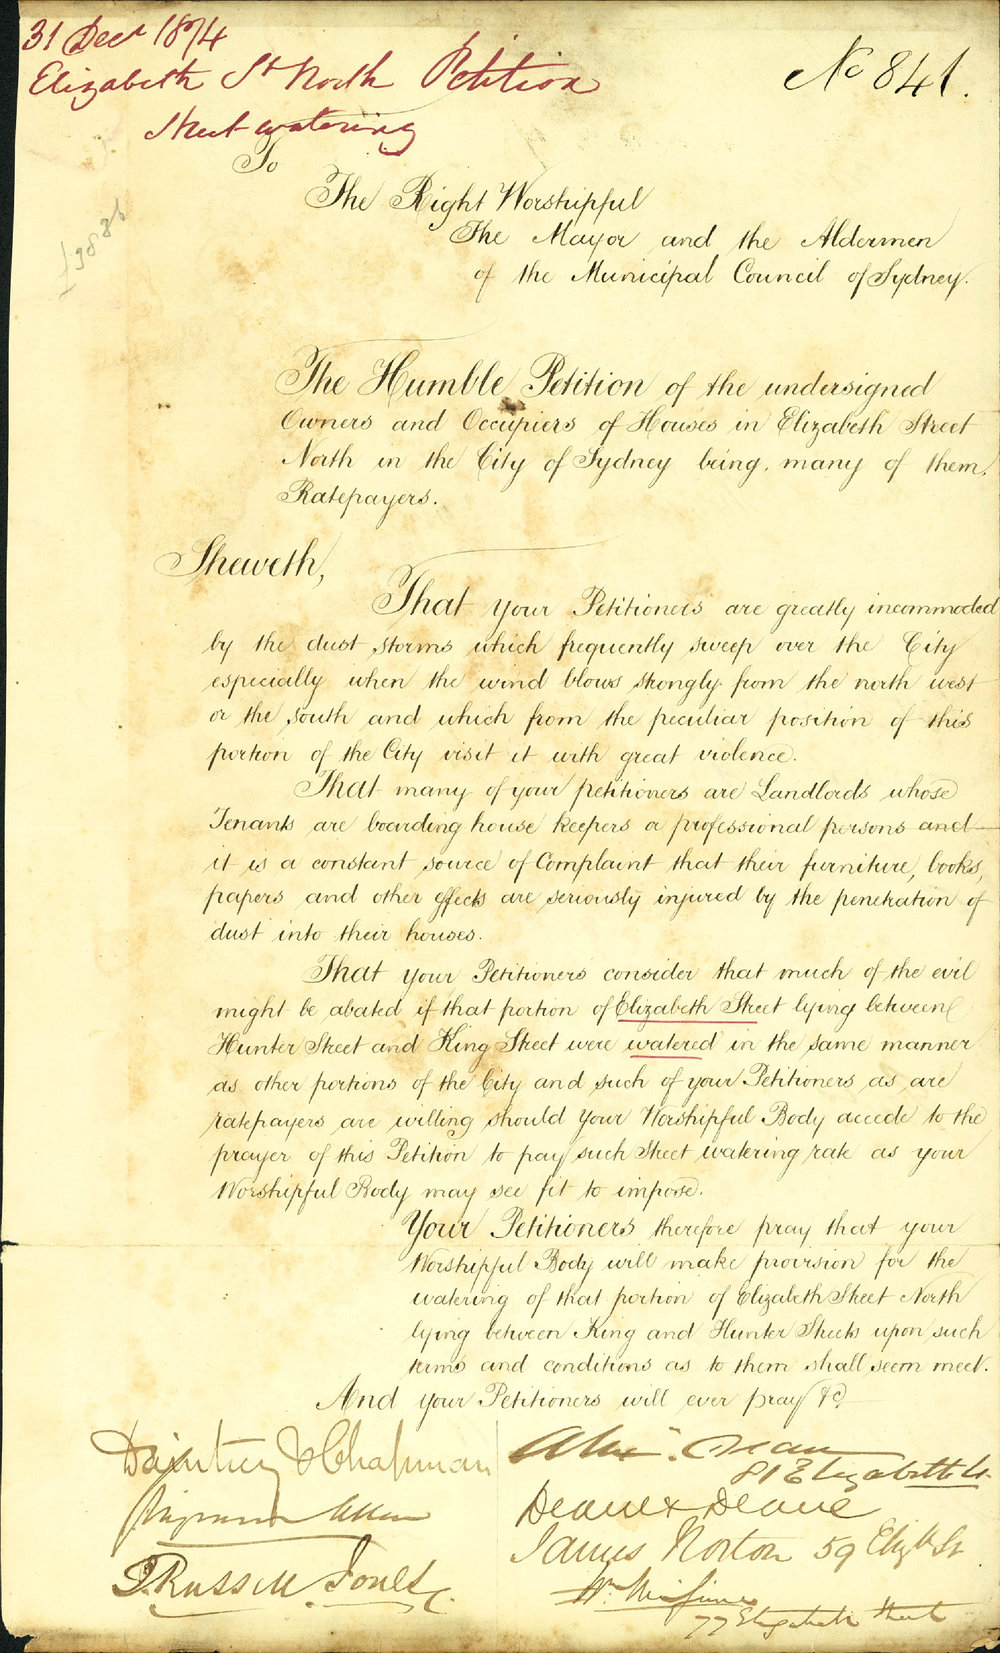 31 Decr 1874
Elizabeth St North Petition
Street watering
No 841.
To
The Right Worshipful
The Mayor and the Aldermen
of the Municipal Council of Sydney.
The Humble Petition of the undersigned
Owners and Occupiers of Houses in Elizabeth Street
North in the City of Sydney being, many of them,
Ratepayers.
Sheweth,
That your Petitioners are greatly incommoded
by the dust storms which frequently sweep over the City
especially when the wind blows strongly from the north west
or the south and which from the peculiar position of this
portion of the City visit it with great violence.
That many of your petitioners are Landlords whose
Tenants are boarding house keepers or professional persons and
it is a constant source of Complaint that their furniture, books,
papers and other effects are seriously injured by the penetration of
dust into their houses.
That your Petitioners consider that much of the evil
might be abated if that portion of Elizabeth Street lying between
Hunter Street and King Street were watered in the same manner
as other portions of the City and such of your Petitioners as are
ratepayers are willing should your Worshipful Body accede to the
prayer of this Petition to pay such Street watering rate as your
Worshipful Body may see fit to impose.
Your Petitioners therefore pray that your
Worshipful Body will make provision for the
watering of that portion of Elizabeth Street North
lying between King and Hunter Streets upon such
terms and conditions as to them shall seem meet.
And your Petitioners will ever pray &c.
Daintrey & Chapman
Allen
S. Russell Jones
Dean
81 Elizabeth St.
Deane & Deane
James Norton 59 Elizth St
Wm
77 Elizabeth Street